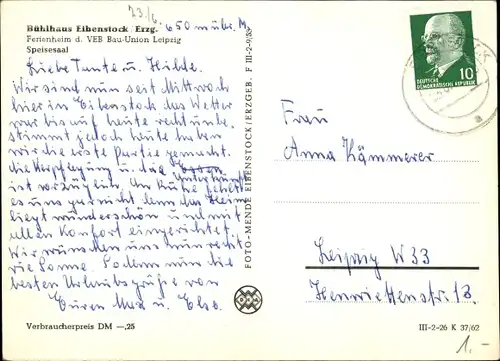 23/6.
650 m ü br. M.
Bühlhaus Eibenstock Erzg.
Ferienheim d. VEB Bau-Union Leipzig
Speisesaal
Liebe Tante u. Hilde.
Wir sind nun seit Mittwoch
hier in Eibenstock das Wetter
war bis auf heute recht unbe-
stimmt jedoch heute haben
wir die erste Partie gemacht.
die Verpflegung u. das Essen
Unterkunft
ist vorzüglich. An Ruhe fehlt
es uns gar nicht denn das Heim
liegt wunderschön und mit
allen Komfort eingerichtet.
Wir wünschen uns nun recht
viel Sonne. Sodann nun die
besten Urlaubsgrüße von
Euren Max u. Else.
Verbraucherpreis DM —,25
FOTO-MENDE EIBENSTOCK/ERZGEB. F III-2-9/85
10
DEUTSCHE
DEMOKRATISCHE REPUBLIK
Frau
Anna Kämmerer
Leipzig W 33
Henriettenstr. 13.
III-2-26 K 37/62
1.-